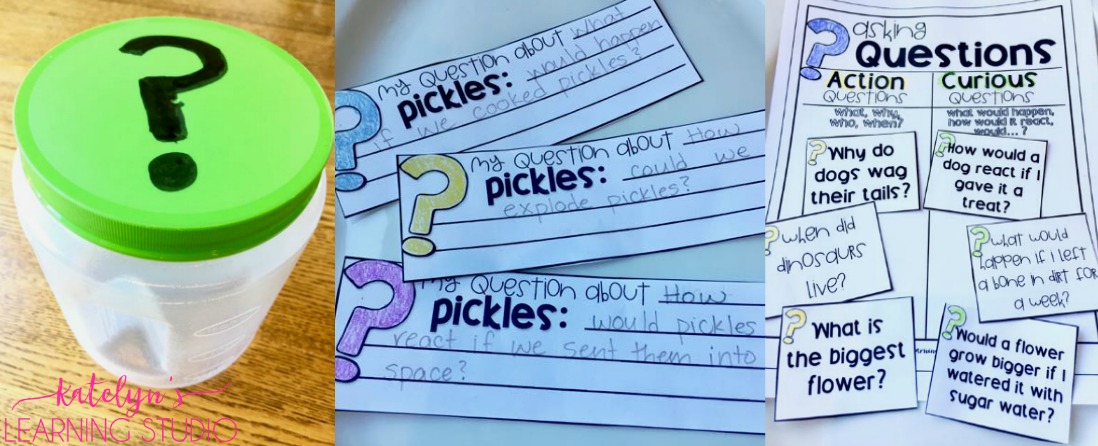 ?
katelyn's
LEARNING STUDIO
? my question about what
pickles: would happen
if we cooked pickles?
? my question about How
pickles: could we
explode pickles?
? my question about How
pickles: would pickles
react if we sent them into
space?
? asking
Questions
Action
Questions
what, why,
who, when?
Curious
Questions
what would happen,
how would it react,
would... ?
? Why do
dogs wag
their tails?
? How would a
dog react if I
gave it a
treat?
? when did
dinosaurs
live?
? what would
happen if I left
a bone in dirt for
a week?
? What is
the biggest
flower?
? Would a flower
grow bigger if I
watered it with
sugar water?